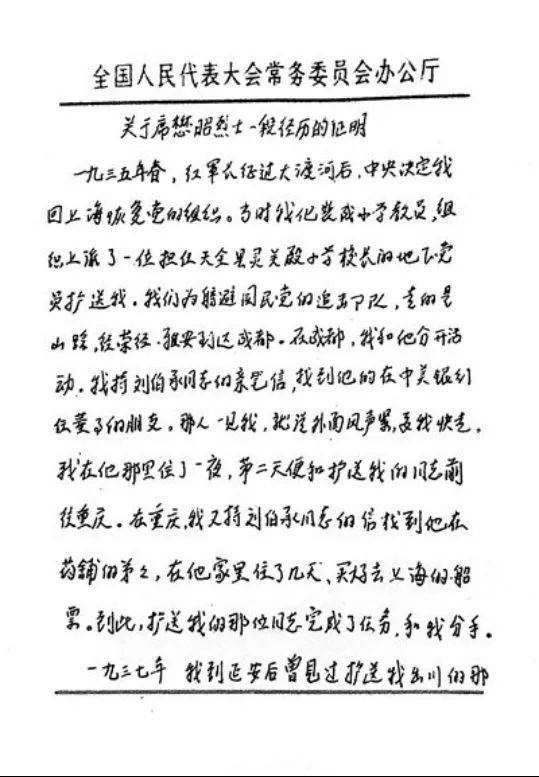 全国人民代表大会常务委员会办公厅
关于席懋昭烈士一段经历的证明
一九三五年春，红军长征过大渡河后，中央决定我
回上海恢复党的组织。当时我化装成小学教员，组
织上派了一位担任天全县灵关殿小学校长的地下党
员护送我。我们为躲避国民党的追击部队，走的是
山路，经荣经、雅安到达成都。在成都，我和他分开活
动。我持刘伯承同志的亲笔信，找到他的在中美银行
任董事的朋友。那人一见我，就说外面风声紧，要我快走。
我在他那里住了一夜，第二天便和护送我的同志前
往重庆。在重庆，我又持刘伯承同志的信找到他在
药铺的弟弟，在他家里住了几天、买好去上海的船
票。到此，护送我的那位同志完成了任务，和我分手。
一九三七年 我到延安后曾见过护送我出川的那